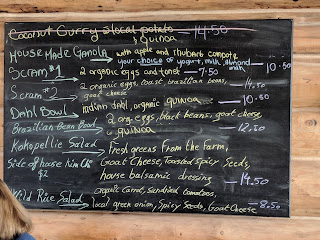 Coconut Curry & local potato — 14.50
& quinoa
House Made Ganola → with apple and rhubarb compote
your choice of yogurt, milk, almond milk — 10.50
Scram #1 → 2 organic eggs and toast — 7.50
Scram #3 → 2 organic eggs, toast, brazilian beans, goat cheese — 14.50
Dahl Bowl → indian dahl, organic quinoa — 10.50
Brazilian Bean Bowl → 2 org. eggs, black beans, goat cheese, quinoa — 12.50
Kokopellie Salad → Fresh greens from the Farm,
Side of house Kim Chi $2
Goat Cheese, Toasted Spicy Seeds,
house balsamic dressing — 14.50
Wild Rice Salad → organic carrot, sundried tomatoes,
local green onion, Spicy Seeds, Goat Cheese — 8.50